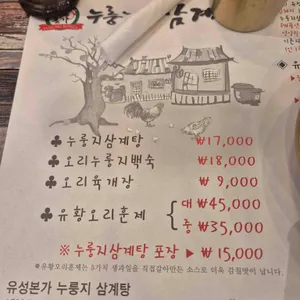 누룽지 삼계
♣ 누룽지삼계탕 ₩17,000
♣ 오리누룽지백숙 ₩18,000
♣ 오리육개장 ₩ 9,000
♣ 유황오리훈제 { 대 ₩45,000
중 ₩35,000
※ 누룽지삼계탕 포장 ▶ ₩ 15,000
※유황오리훈제는 5가지 생과일을 직접갈아만든 소스로 더욱 감칠맛이 납니다.
유성본가 누룽지 삼계탕